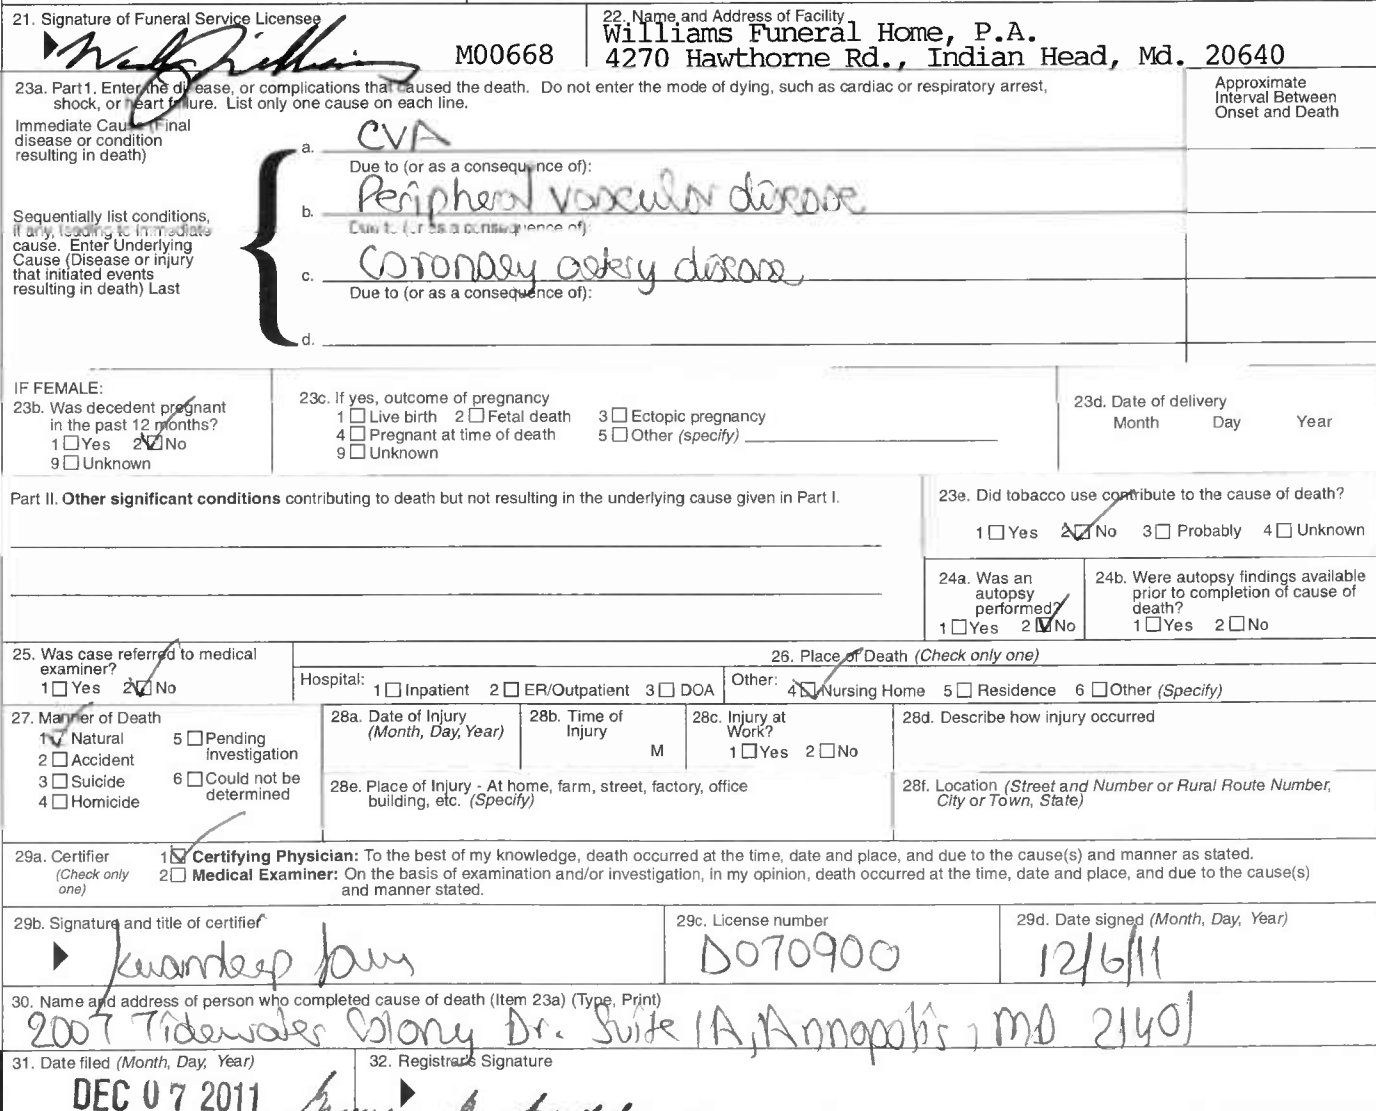 21. Signature of Funeral Service Licensee
M00668
22. Name and Address of Facility
Williams Funeral Home, P.A.
4270 Hawthorne Rd., Indian Head, Md. 20640
23a. Part1. Enter the disease, or complications that caused the death. Do not enter the mode of dying, such as cardiac or respiratory arrest,
shock, or heart failure. List only one cause on each line.
Approximate
Interval Between
Onset and Death
Immediate Cause (Final
disease or condition
resulting in death)
a. CVA
Due to (or as a consequence of):
b. Peripheral vascular disease
Due to (or as a consequence of):
Sequentially list conditions,
if any, leading to immediate
cause. Enter Underlying
Cause (Disease or injury
that initiated events
resulting in death) Last
c. Coronary artery disease
Due to (or as a consequence of):
d.
IF FEMALE:
23b. Was decedent pregnant
in the past 12 months?
1 Yes 2 No
9 Unknown
23c. If yes, outcome of pregnancy
1 Live birth 2 Fetal death 3 Ectopic pregnancy
4 Pregnant at time of death 5 Other (specify)
9 Unknown
23d. Date of delivery
Month Day Year
Part II. Other significant conditions contributing to death but not resulting in the underlying cause given in Part I.
23e. Did tobacco use contribute to the cause of death?
1 Yes 2 No 3 Probably 4 Unknown
24a. Was an
autopsy
performed?
1 Yes 2 No
24b. Were autopsy findings available
prior to completion of cause of
death?
1 Yes 2 No
25. Was case referred to medical
examiner?
1 Yes 2 No
26. Place of Death (Check only one)
Hospital: 1 Inpatient 2 ER/Outpatient 3 DOA
Other: 4 Nursing Home 5 Residence 6 Other (Specify)
27. Manner of Death
1 Natural
2 Accident
3 Suicide
4 Homicide
5 Pending
investigation
6 Could not be
determined
28a. Date of Injury
(Month, Day, Year)
28b. Time of
Injury
M
28c. Injury at
Work?
1 Yes 2 No
28d. Describe how injury occurred
28e. Place of Injury - At home, farm, street, factory, office
building, etc. (Specify)
28f. Location (Street and Number or Rural Route Number,
City or Town, State)
29a. Certifier
(Check only
one)
1 Certifying Physician: To the best of my knowledge, death occurred at the time, date and place, and due to the cause(s) and manner as stated.
2 Medical Examiner: On the basis of examination and/or investigation, in my opinion, death occurred at the time, date and place, and due to the cause(s)
and manner stated.
29b. Signature and title of certifier
29c. License number
D070900
29d. Date signed (Month, Day, Year)
12/6/11
30. Name and address of person who completed cause of death (Item 23a) (Type, Print)
2007 Tidewater Colony Dr. Suite 1A, Annapolis, MD 21401
31. Date filed (Month, Day, Year)
DEC 07 2011
32. Registrar's Signature